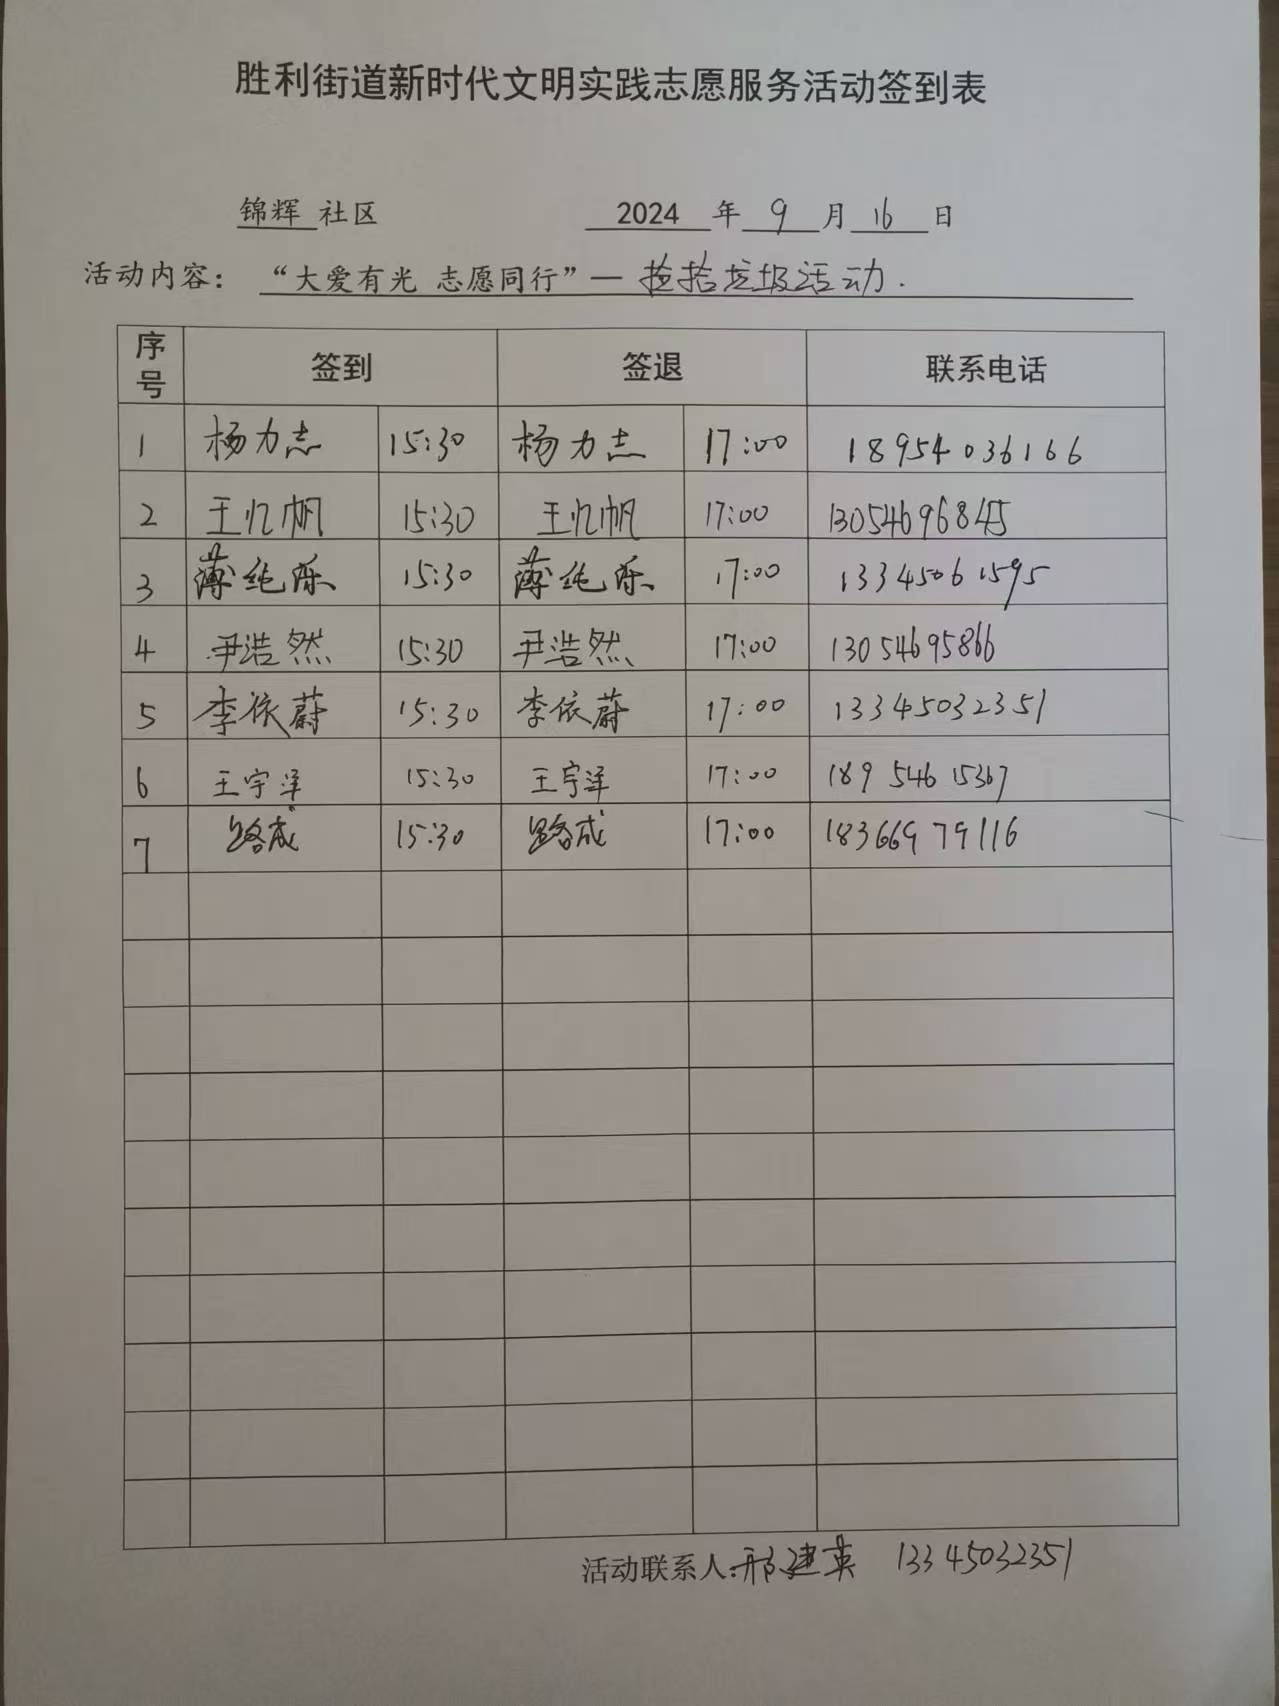 胜利街道新时代文明实践志愿服务活动签到表
锦辉 社区 2024 年 9 月 16 日
活动内容：“大爱有光 志愿同行”— 捡拾垃圾活动.
序号 签到 签退 联系电话
1 杨力志 15:30 杨力志 17:00 18954036166
2 王忆帆 15:30 王忆帆 17:00 13054696845
3 薄纯烁 15:30 薄纯烁 17:00 13345061595
4 尹浩然 15:30 尹浩然 17:00 13054695866
5 李依蔚 15:30 李依蔚 17:00 13345032351
6 王宇洋 15:30 王宇洋 17:00 18954615367
7 路成 15:30 路成 17:00 18366979116
活动联系人:邢建英 13345032351